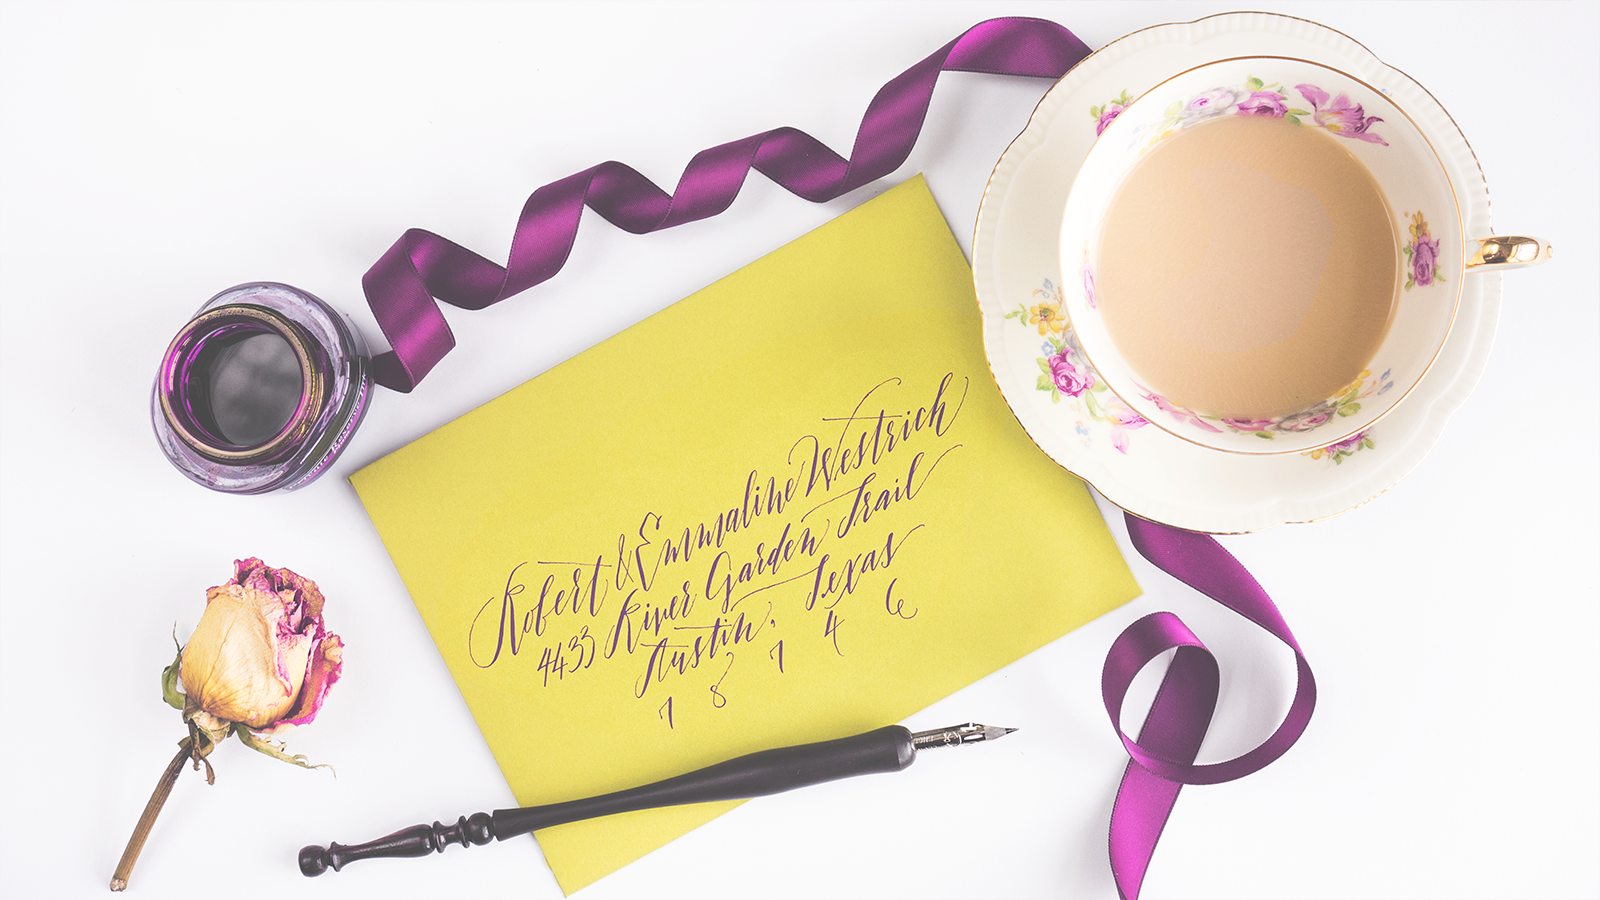 Robert & Emmaline Westrich
4433 River Garden Trail
Austin, Texas
78746